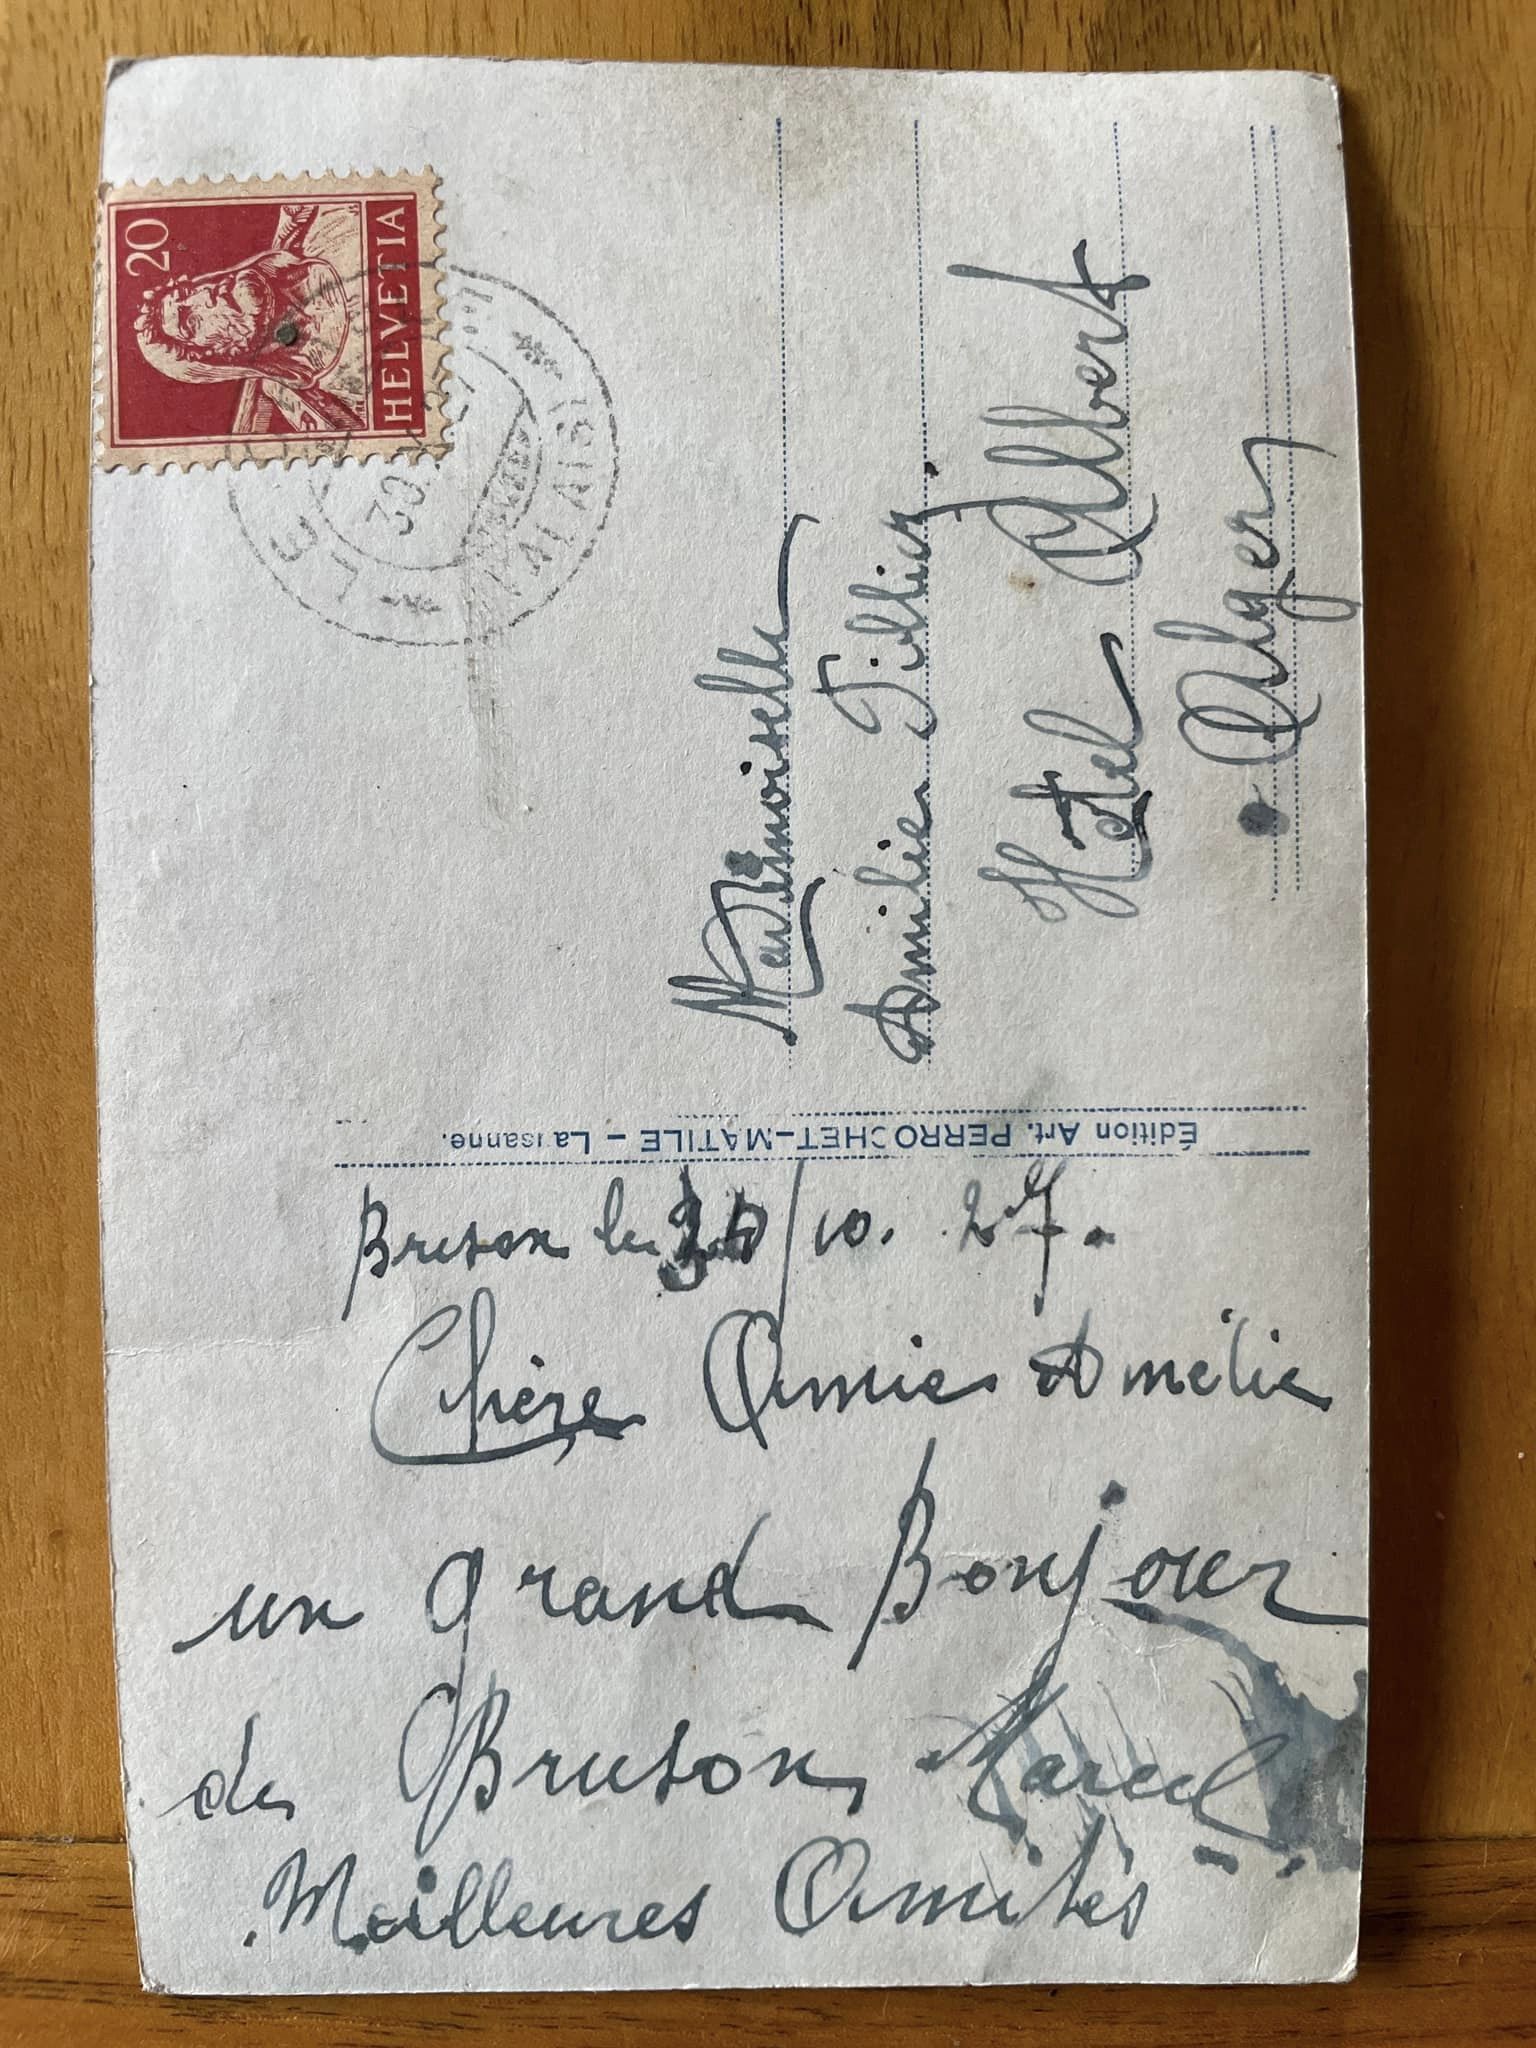 Bruson le 30/10. 27.
Chère Amie Amélie
un grand Bonjour
de Bruson Marcel
Meilleures Amitiés
Édition Art. PERROCHET-MATILE – Lausanne.
HELVETIA
20
LE
30
27
(VALAIS)
Mademoiselle
Amélie
Hôtel Albert
Alger